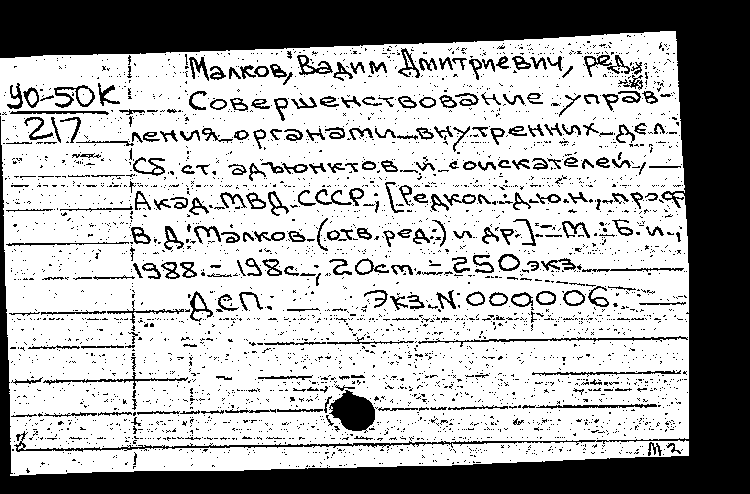 Малков, Вадим Дмитриевич, ред.
У0-50К
217
Совершенствование управ-
ления органами внутренних дел.
Сб. ст. адъюнктов и соискателей,
Акад. МВД СССР; [Редкол.: д.ю.н., проф
В.Д. Малков (отв. ред.) и др.] - М.: Б.и.,
1988. - 198с.; 20см. - 250 экз.
Д.С.П. Экз. N 000006.
м.2